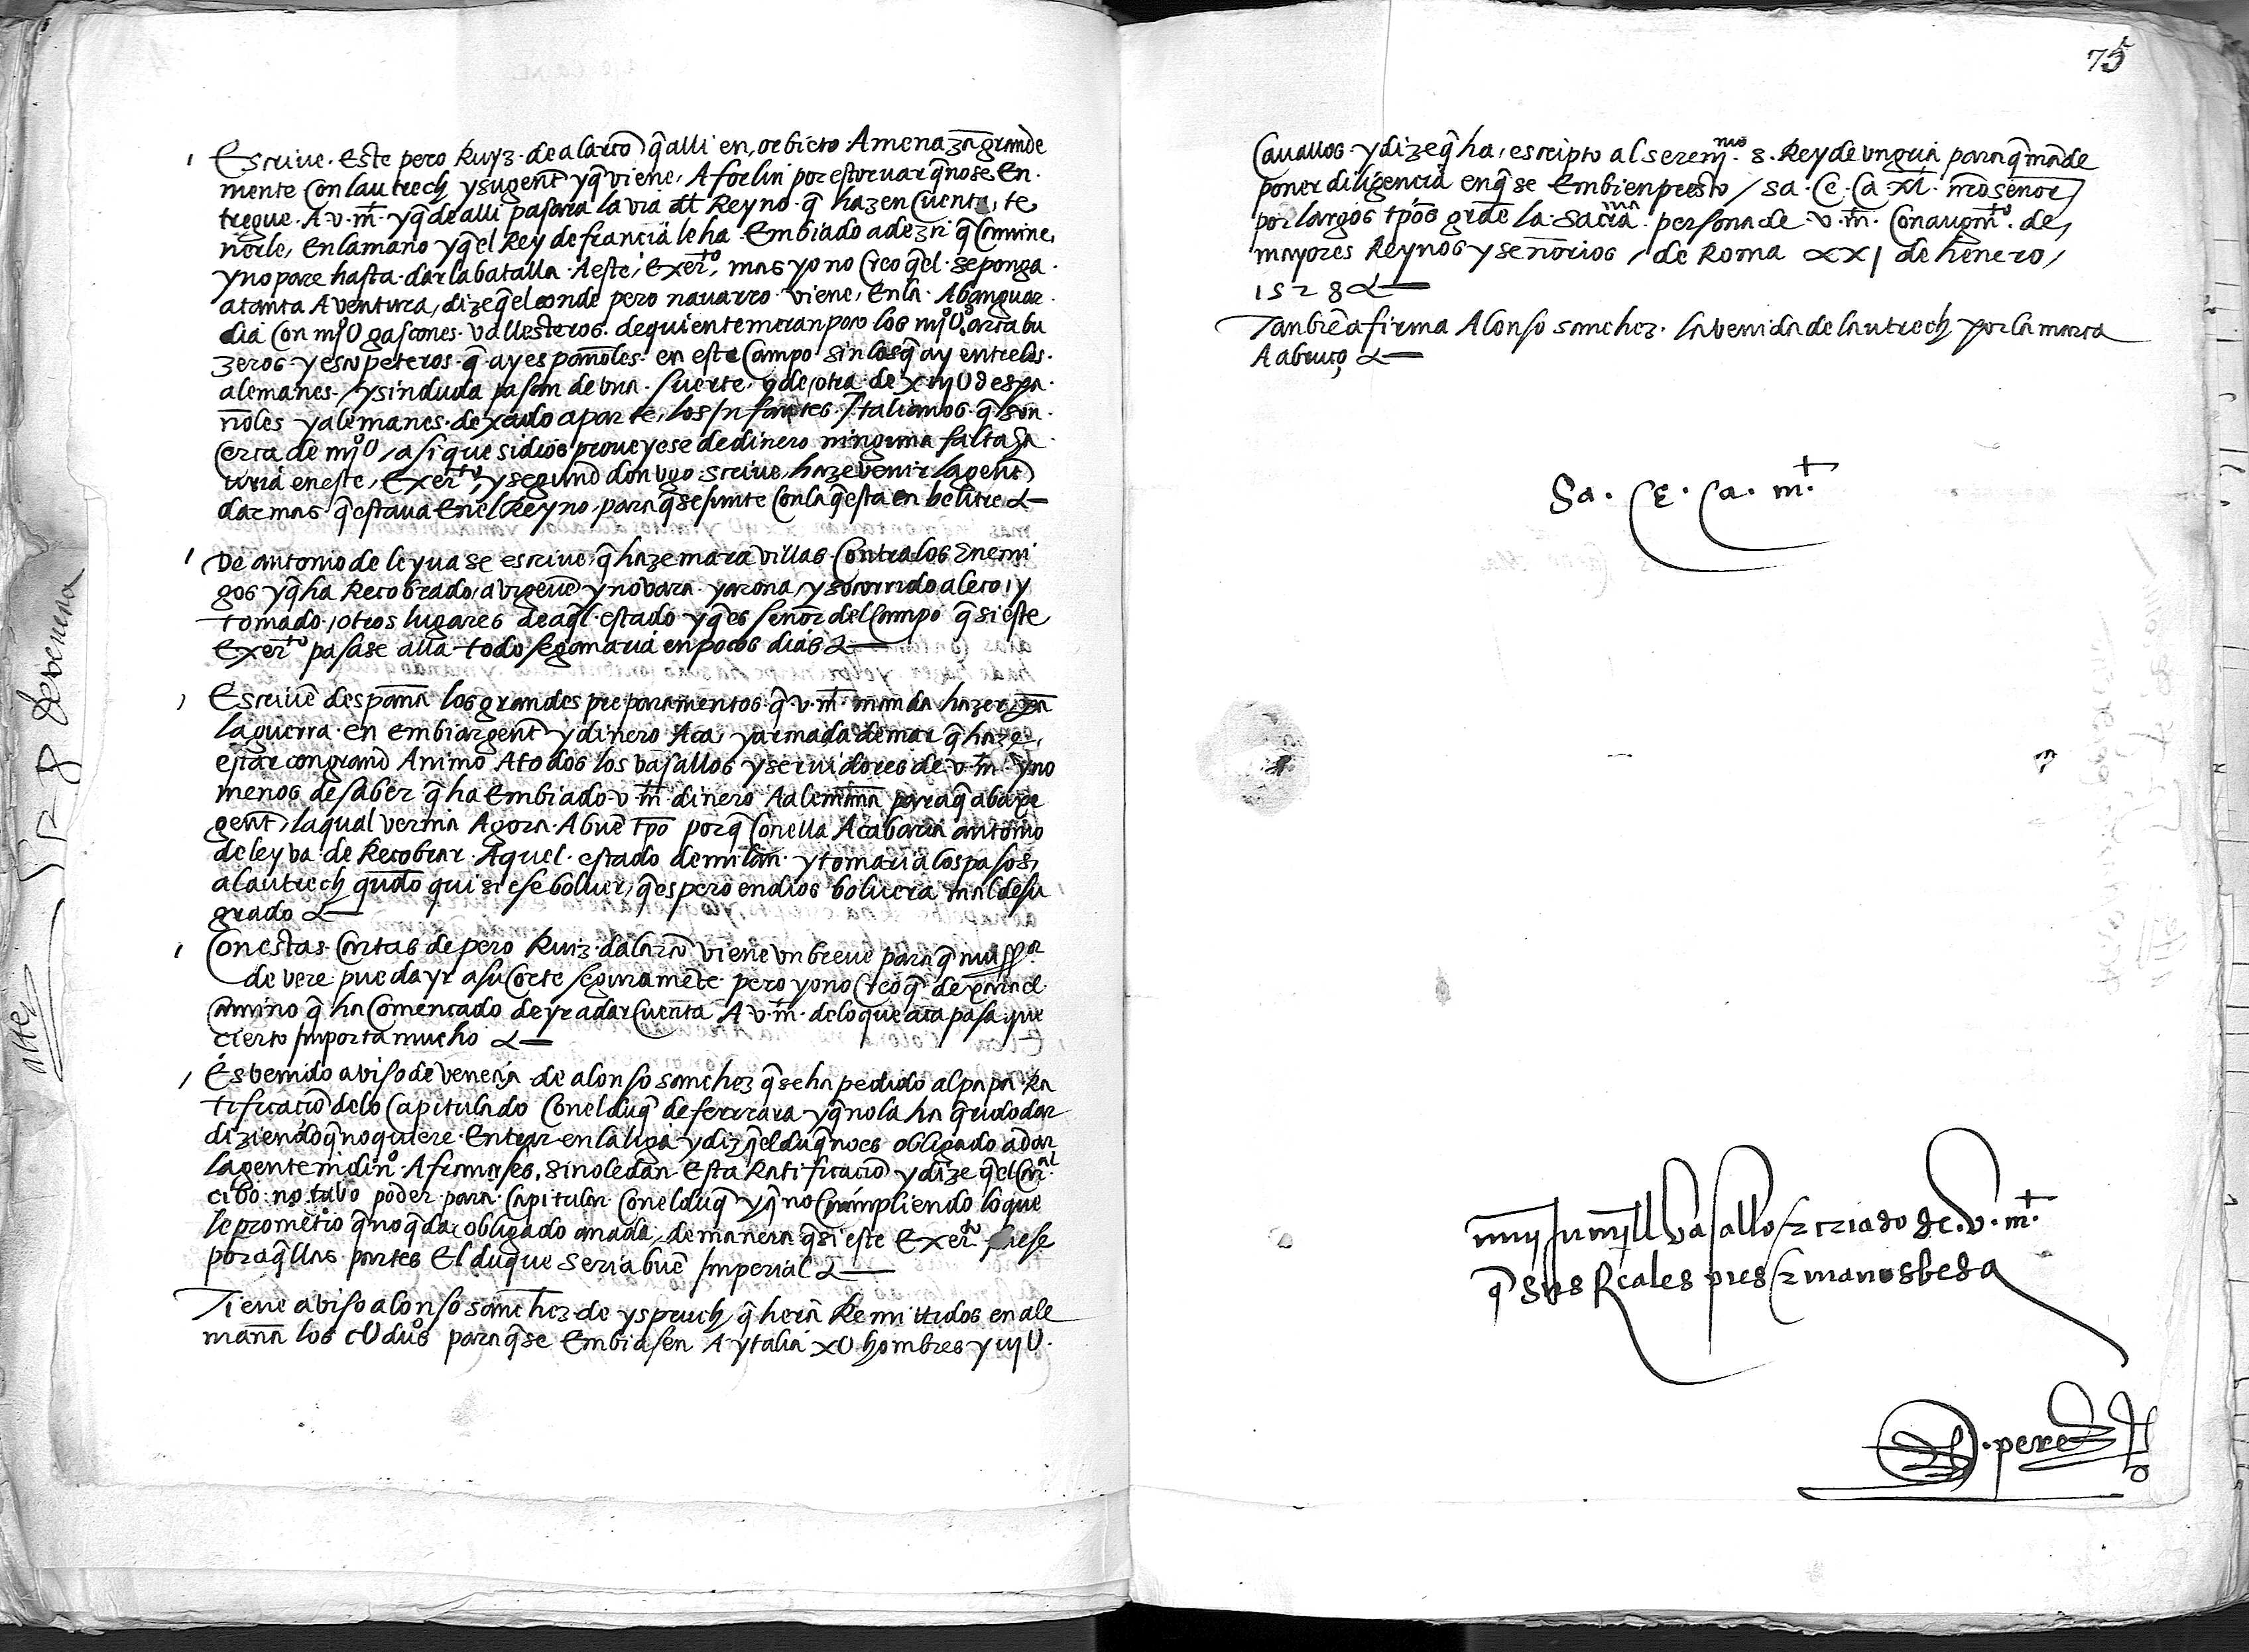 Escriue. Este pero Ruyz. de alarcō q̄ alli en, orbieto Amenazā grande
mente Con lautrech y su gent̄ y q̄ viene, A forlin por estoruar q̄ no se En.
tregue. A v. m̄t. y q̄ de alli pasaria la via d̄l Reyno. q̄ hazen Cuenta, te
nerle, en la mano y q̄ el Rey de francia le ha. Embiado a dezir q̄ Camine,
y no pare hasta. dar la batalla. A este, exerto, mas yo no Creo q̄ el. se ponga.
a tanta Auentura, dize q̄ el conde pero nauarro. viene, en la. Abanguar.
dia Con mjU gascones. vallesteros. de quien temeran poco los mjU, arcabu
zeros. y escopeteros. q̄ ay españoles. en este Campo sin los q̄ ay entre los.
alemanes. / y sin duda pasan de vna. suerte, o de, otra de xmjU despa.
ñoles y alemanes. dexādo aparte, los Infantes. Italianos. q̄ son.
Cerca de mjU, asi que si dios proueyese de dinero ninguna falta ha
uria en este, Exerto, y segund don vgo. scriue, haze venir la gent̄
darmas. q̄ estaua en el Reyno. para q̄ se Junte Con la q̄ esta en belitre
De antonio de leyua se escriue, q̄ haze marauillas. Contra los Enemi
gos y q̄ ha Recobrado, a vigeuē y novara. y arona, y socorrido a leco, y
tomado, otros lugares de aq̄l. estado y q̄ es señor del Campo q̄ si este
Exerto pasase alla todo se ganaria en pocos dias
Escriuē despaña los grandes preparamentos. q̄ v. m̄t. manda hazer pā
la guerra. en embiar gent̄ y dinero Aca, y armada de mar q̄ haze,
estar con grand Animo A todos los vasallos y seruidores de. v. m̄t. y no
menos de saber q̄ ha Embiado. v. m̄t. dinero A alemaña para q̄ abaxe
gent̄, la qual vernia Agora. A buē tpo porq̄ Con ella Acabaria antonio
de leyba de Recobrar. Aquel. estado de milan. y tomaria los pasos,
a lautrech quādo quisiese boluer, q̄ espero en dios boluera mal de su
grado
Con estas. Cartas de pero Ruiz. dalarcō viene vn breue para q̄
de vere pueda yr a su Corte seguramēte. pero yo no Creo q̄ dexara el.
Camino q̄ ha Comencado de yr a dar Cuenta A v. m̄t. de lo que aca pasa que
cierto Importa mucho
Es venido aviso de venecia de alonso sanchez q̄ se ha pedido al papa Ra
tificaciō de lo Capitulado Con el duq̄ de ferrara y q̄ no la ha q̄rido dar
diziendo q̄ no quiere. Entrar en la liga y diz q̄ el duq̄ no es obligado a dar
la gente ni dino. A franceses. si no le dan Esta Ratificaciō y dize q̄ el Caral.
cibo. no tubo poder para. Capitular Con el duq̄ y q̄ no Cumpliendo lo que
le prometio q̄ no q̄da obligado a nada, de manera q̄ si este Exerto fuese
por aq̄llas partes El duque seria buē Imperial
Tiene aviso alonso sanchez de yspruch q̄ herā Remittidos en ale
maña los cU duos para q̄ se Embiasen A ytalia xU hombres y iijU.
75
Cauallos y dize q̄ ha, escripto al seremo. s. Rey de vngria para q̄ māde
poner diligencia en q̄ se Embien presto / sa. Ce. Ca. m̄t. n̄ro señor
por largos tpos grde la. sacra. persona de v. m̄t. Con augmto. de,
mayores Reynos y señorios, de Roma xxj de henero,
1528
Tanbiē afirma Alonso sanchez. la venida de lautrech por la marca
A abruço
Sa. Ce. Ca. m̄t.
muy humyll vasallo & criado de. v. m̄t.
q̄ sus Reales pies & manos besa
perez
1528 de venecia